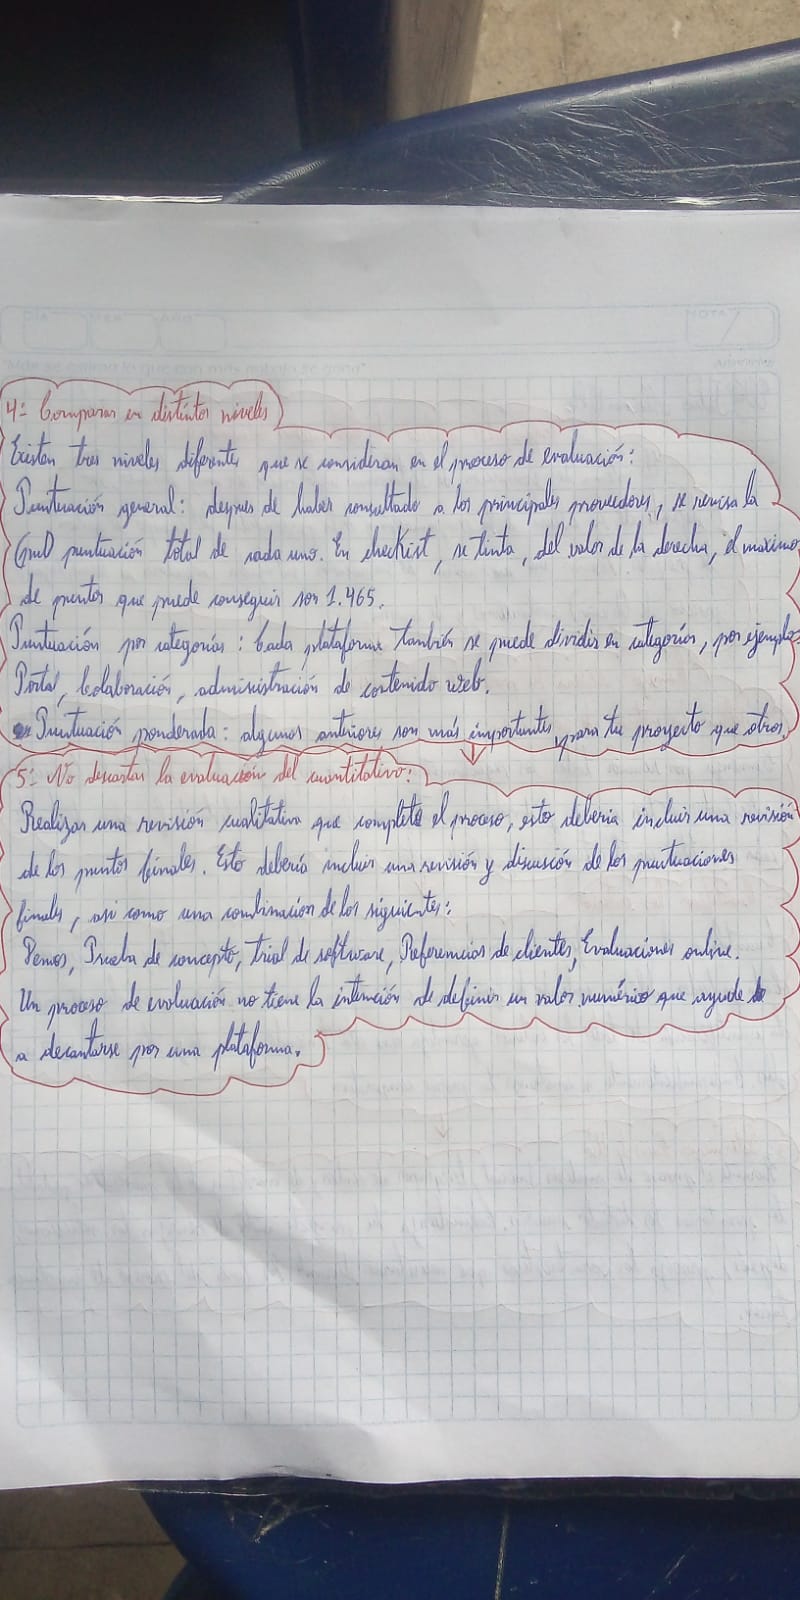 4: Comparar en distintos niveles
Existen tres niveles diferentes que se consideran en el proceso de evaluación:
Puntuación general: despues de haber consultado a los principales proveedores, se revisa la
puntuación total de cada uno. En checkist, se tinta, del valor de la derecha, el maximo
de puntos que puede conseguir son 1.465.
Puntuación por categorías: Cada plataforma también se puede dividir en categorías, por ejemplo:
Portal, Colaboración, administración de contenido web.
Puntuación ponderada: algunos anteriores son más importantes para tu proyecto que otros.
5: No descartar la evaluación del cuantitativo:
Realizar una revisión cualitativa que complete el proceso, esto deberia incluir una revisión
de los puntos finales. Esto debería incluir una revisión y discusión de los puntuaciones
finales, asi como una combinación de los siguientes:
Demos, Prueba de concepto, trial de software, Referencias de clientes, Evaluaciones online.
Un proceso de evaluación no tiene la intención de definir un valor numérico que ayude
a decantarse por una plataforma.